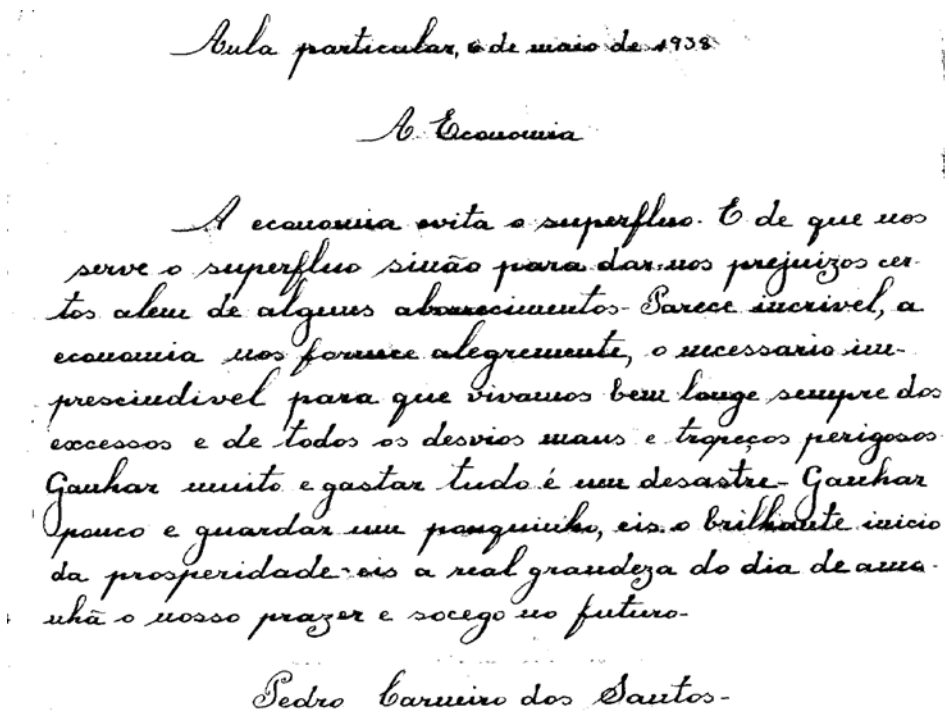 Aula particular, 6 de maio de 1938
A Economia
A economia evita o superfluo. E de que nos
serve o superfluo sinão para dar-nos prejuizos cer-
tos alem de alguns aborrecimentos- Parece incrivel, a
economia nos fornece alegremente, o necessario im-
prescindivel para que vivamos bem longe sempre dos
excessos e de todos os desvios maus e tropeços perigosos
Ganhar muito e gastar tudo é um desastre- Ganhar
pouco e guardar um pouquinho, eis o brilhante inicio
da prosperidade-eis a real grandeza do dia de ama-
nhã o nosso prazer e socego no futuro-
Pedro Carneiro dos Santos-